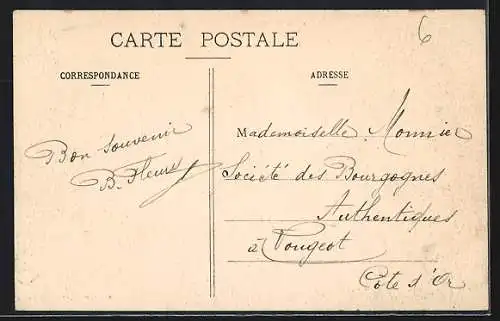 6
CARTE POSTALE
CORRESPONDANCE
ADRESSE
Bon souvenir
B. Fleury
Mademoiselle Monnier
Société des Bourgognes
Authentiques
à Pougeot
Côte d'Or